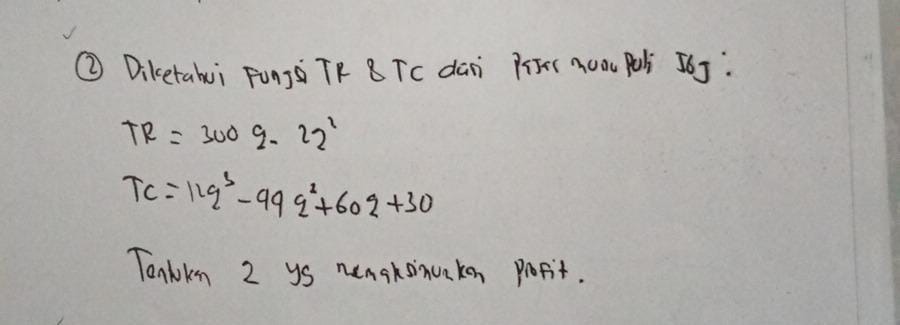 ② Diketahui Fungsi TR & TC dari Pasar monopoli sbg :
TR = 300 q - 2q²
TC = 12q³ - 99 q² + 60q + 30
Tentukan q yg memaksimumkan profit.